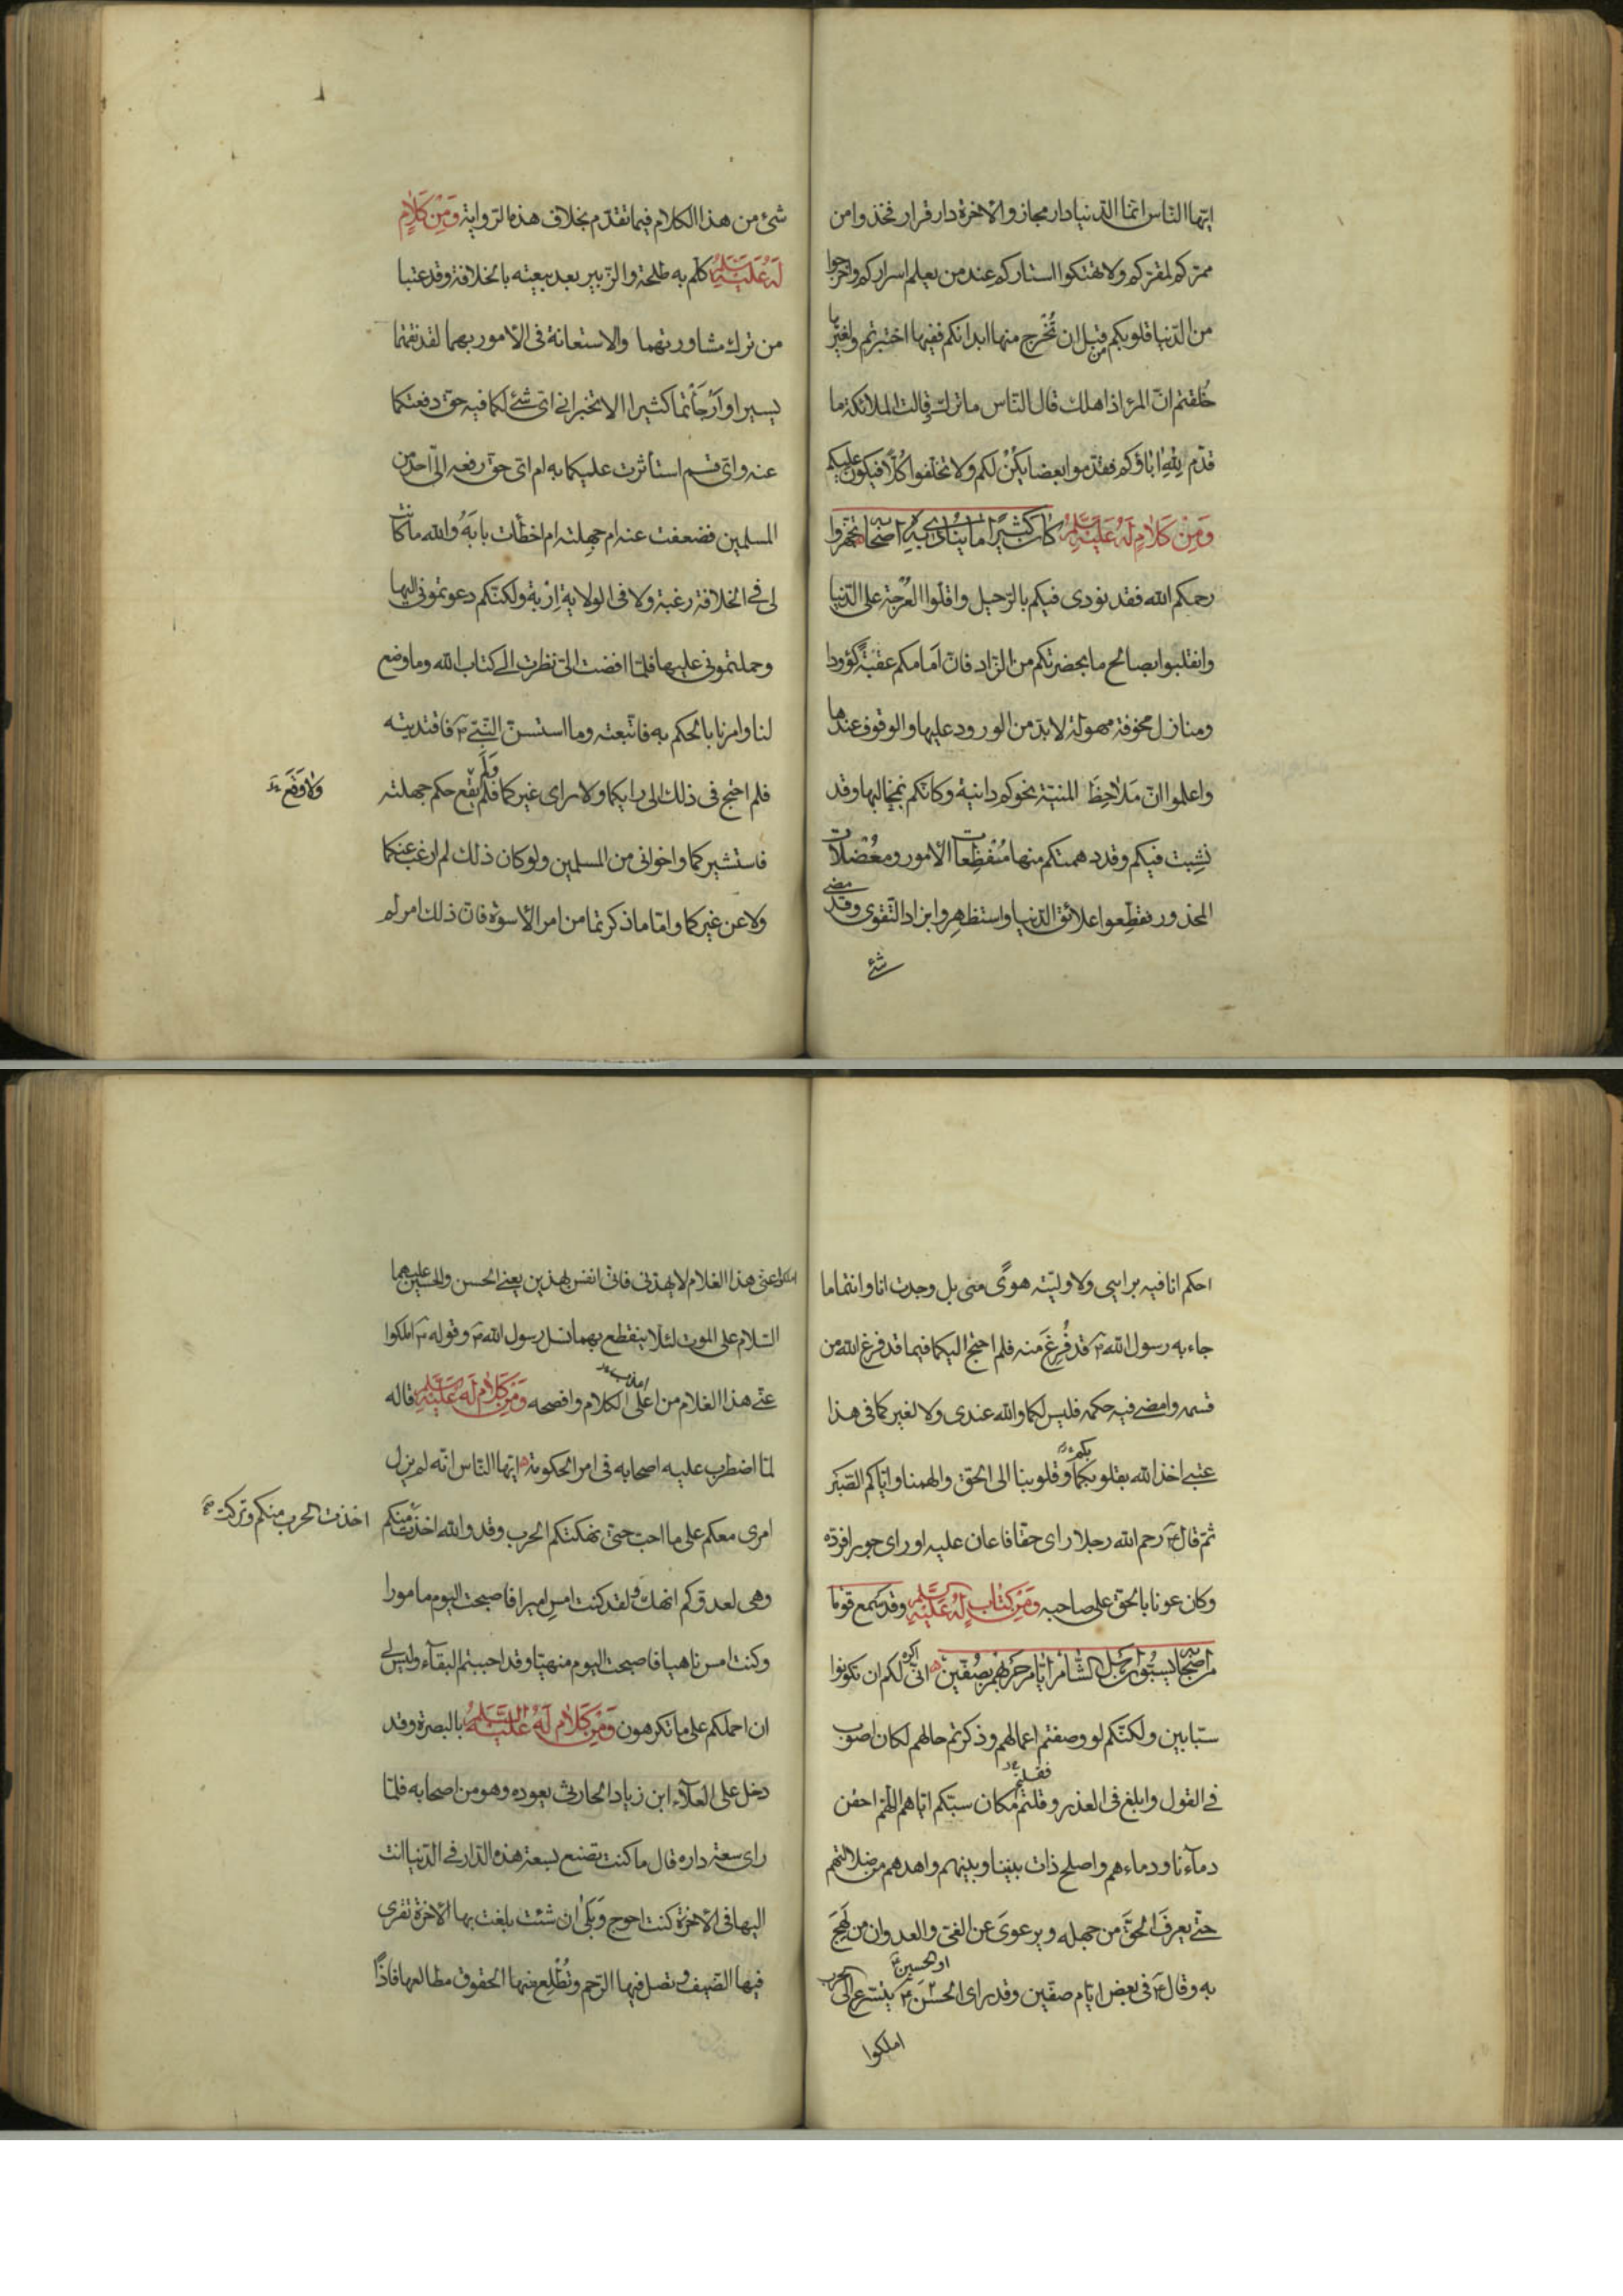 ايّها الناس انّما الدّنيا دار مجاز والآخرة دار قرار فخذوا من
ممرّكم لمقرّكم ولا تهتكوا استاركم عند من يعلم اسراركم واخرجوا
من الدّنيا قلوبكم من قبل ان تُخْرج منها ابدانكم ففيها اختبرتم ولغيرها
خُلقتم انّ المرء اذا هلك قال النّاس ما ترك وقالت الملائكة ما
قدّم لِلّهِ اباؤكم فقدّموا بعضا يكُنْ لكم ولا تخلّفوا كُلّا فيكون عليكم
وَمِنْ كَلَامٍ لَهُ عَلَيْهِ السَّلم كانَ كَثيرًا ما يُنادي بِهِ اصحابَه تجهّزوا
رحمكم الله فقد نودى فيكم بالرّحيل واقلّوا العُرْجة على الدّنيا
وانقلبوا بصالح ما بحضرتكم من الزّاد فانّ اَمامكم عقبَةً كؤودا
ومنازل مخوفة مهولة لابدّ من الورود عليها والوقوف عندها
واعلموا انّ مَلاحِظَ المنيّة نحوكم دانية وكانّكم بمخالبها وقد
نشِبت فيكم وقد دهمتكم منها مُفْظِعات الامور ومُعْضلات
المحذور فقطّعوا علائق الدّنيا واستظهِروا بزاد التّقوى وقد مضى
شئ
شئ من هذا الكلام فيما تقدّم بخلاف هذه الرّواية وَمِنْ كَلَامٍ
لَهُ عَلَيْهِ السَّلم كلّم به طلحة والزّبير بعد بيعته بالخلافة وقد عتبا
من ترك مشاورتهما والاستعانة فى الامور بهما لقد نقمتما
يسيرا وارْجَأْتما كثيرا الا تخبرانى اىّ شئ لكما فيه حقّ دفعتكما
عنه واىّ قسم استأثرت عليكما به ام اىّ حقّ رفعه الىّ احد من
المسلمين ضعفت عنه ام جهلته ام اخطأت بابَهُ والله ما كانت
لى فى الخلافة رغبة ولا فى الولاية اِرْبة ولكنّكم دعوتمونى اليها
وحملتمونى عليها فلمّا افضت الىّ نظرت الى كتاب الله وما وضع
لنا وامرنا بالحكم به فاتّبعته وما استسنّ النّبىّ ص فاقتديته
فلم احتج فى ذلك الى رايكما ولا راى غيركما فلم يقع حكم جهلته
وَلَم
ولا وَقَعَ
فاستشيركما واخوانى من المسلمين ولو كان ذلك لم ارغب عنكما
ولا عن غيركما وامّا ما ذكرتما من امر الاسوة فانّ ذلك امر لم
احكم انا فيه برايى ولا وليّته هوًى منّى بل وجدت انا وانتما ما
جاء به رسول الله ص قد فُرِغَ منه فلم احتج اليكما فيما قد فرغ الله من
قسمه وامضى فيه حكمه فليس لكما والله عندى ولا لغيركما فى هذا
عتبى اخذ الله بقلوبكما وقلوبنا الى الحقّ والهمنا وايّاكم الصّبْر
بكم
ثمّ قال ع رحم الله رجلا راى حقّا فاعان عليه او راى جورا فردّه
وكان عونا بالحقّ على صاحبه وَمِنْ كِتابٍ لَهُ عَلَيْهِ السَّلم وقد سمع قوما
من اصحابه يسُبّون اهل الشّام ايّام حربهم بصفّين انّى اكره لكم ان تكونوا
سبّابين ولكنّكم لو وصفتم اعمالهم وذكرتم حالهم لكان اصوب
فى القول وابلغ فى العذر وقلتم مكان سبّكم ايّاهم اللّهمّ احقن
فقلتم
دمآءنا ودماءهم واصلح ذات بيننا وبينهم واهدهم من ضلالتهم
حتّى يعرفَ الحقَّ من جهله ويرعوىَ عن الغىّ والعدوان من لَهِجَ
به وقال ع فى بعض ايّام صفّين وقد راى الحسَن ع يتسرّع الى الحرب
او الحسين
املكوا
املكوا عنّى هذا الغلام لا يهدّنى فانّى انفس بهذين يعنى الحسن والحسين عليهما
السّلام على الموت لئلّا ينقطع بهما نسل رسول الله ص وقوله ع املكوا
عنّى هذا الغلام من اعلى الكلام وافصحه وَمِنْ كَلَامٍ لَهُ عَلَيْهِ السَّلم قاله
لمّا اضطرب عليه اصحابه فى امر الحكومة ايّها النّاس انّه لم يزل
امرى معكم على ما احبّ حتّى نهكتكم الحرب وقد والله اخذت منكم
اخذت الحرب منكم وتركت
وهى لعدوّكم انهك ولقد كنت امسِ اميرا فاصبحت اليوم مامورا
وكنت امس ناهيا فاصبحت اليوم منهيّا وقد احببتم البقآء وليس لى
ان احملكم على ما تكرهون وَمِنْ كَلَامٍ لَهُ عَلَيْهِ السَّلم بالبصرة وقد
دخل على العلآء ابن زياد الحارثىّ يعوده وهو من اصحابه فلمّا
راى سعة داره قال ما كنت تصنع بسعة هذه الدّار فى الدّنيا انت
اليها فى الآخرة كنت احوج وَبَلى ان شئت بلغت بها الآخرة تقرى
فيها الضّيف وتصل فيها الرّحم وتُطْلِع منها الحقوق مطالعها فاذًا